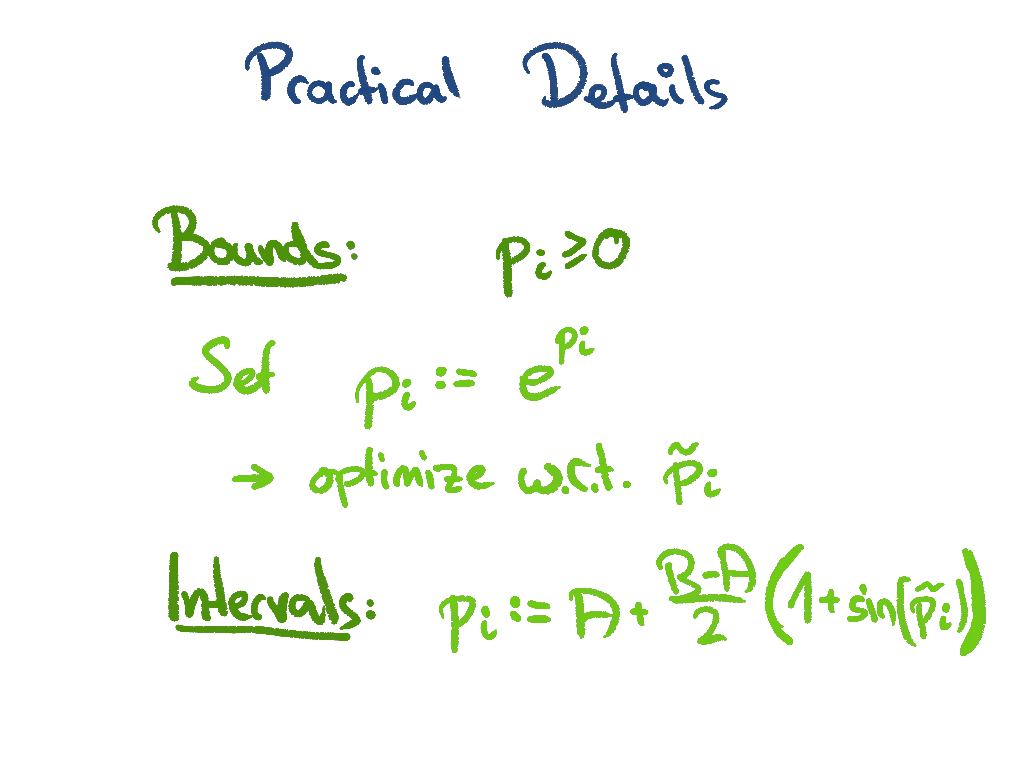 Practical Details
Bounds: pᵢ ≥ 0
Set pᵢ := e^(pᵢ)
→ optimize w.r.t. p̃ᵢ
Intervals: pᵢ := A + (B-A)/2 (1 + sin(p̃ᵢ))